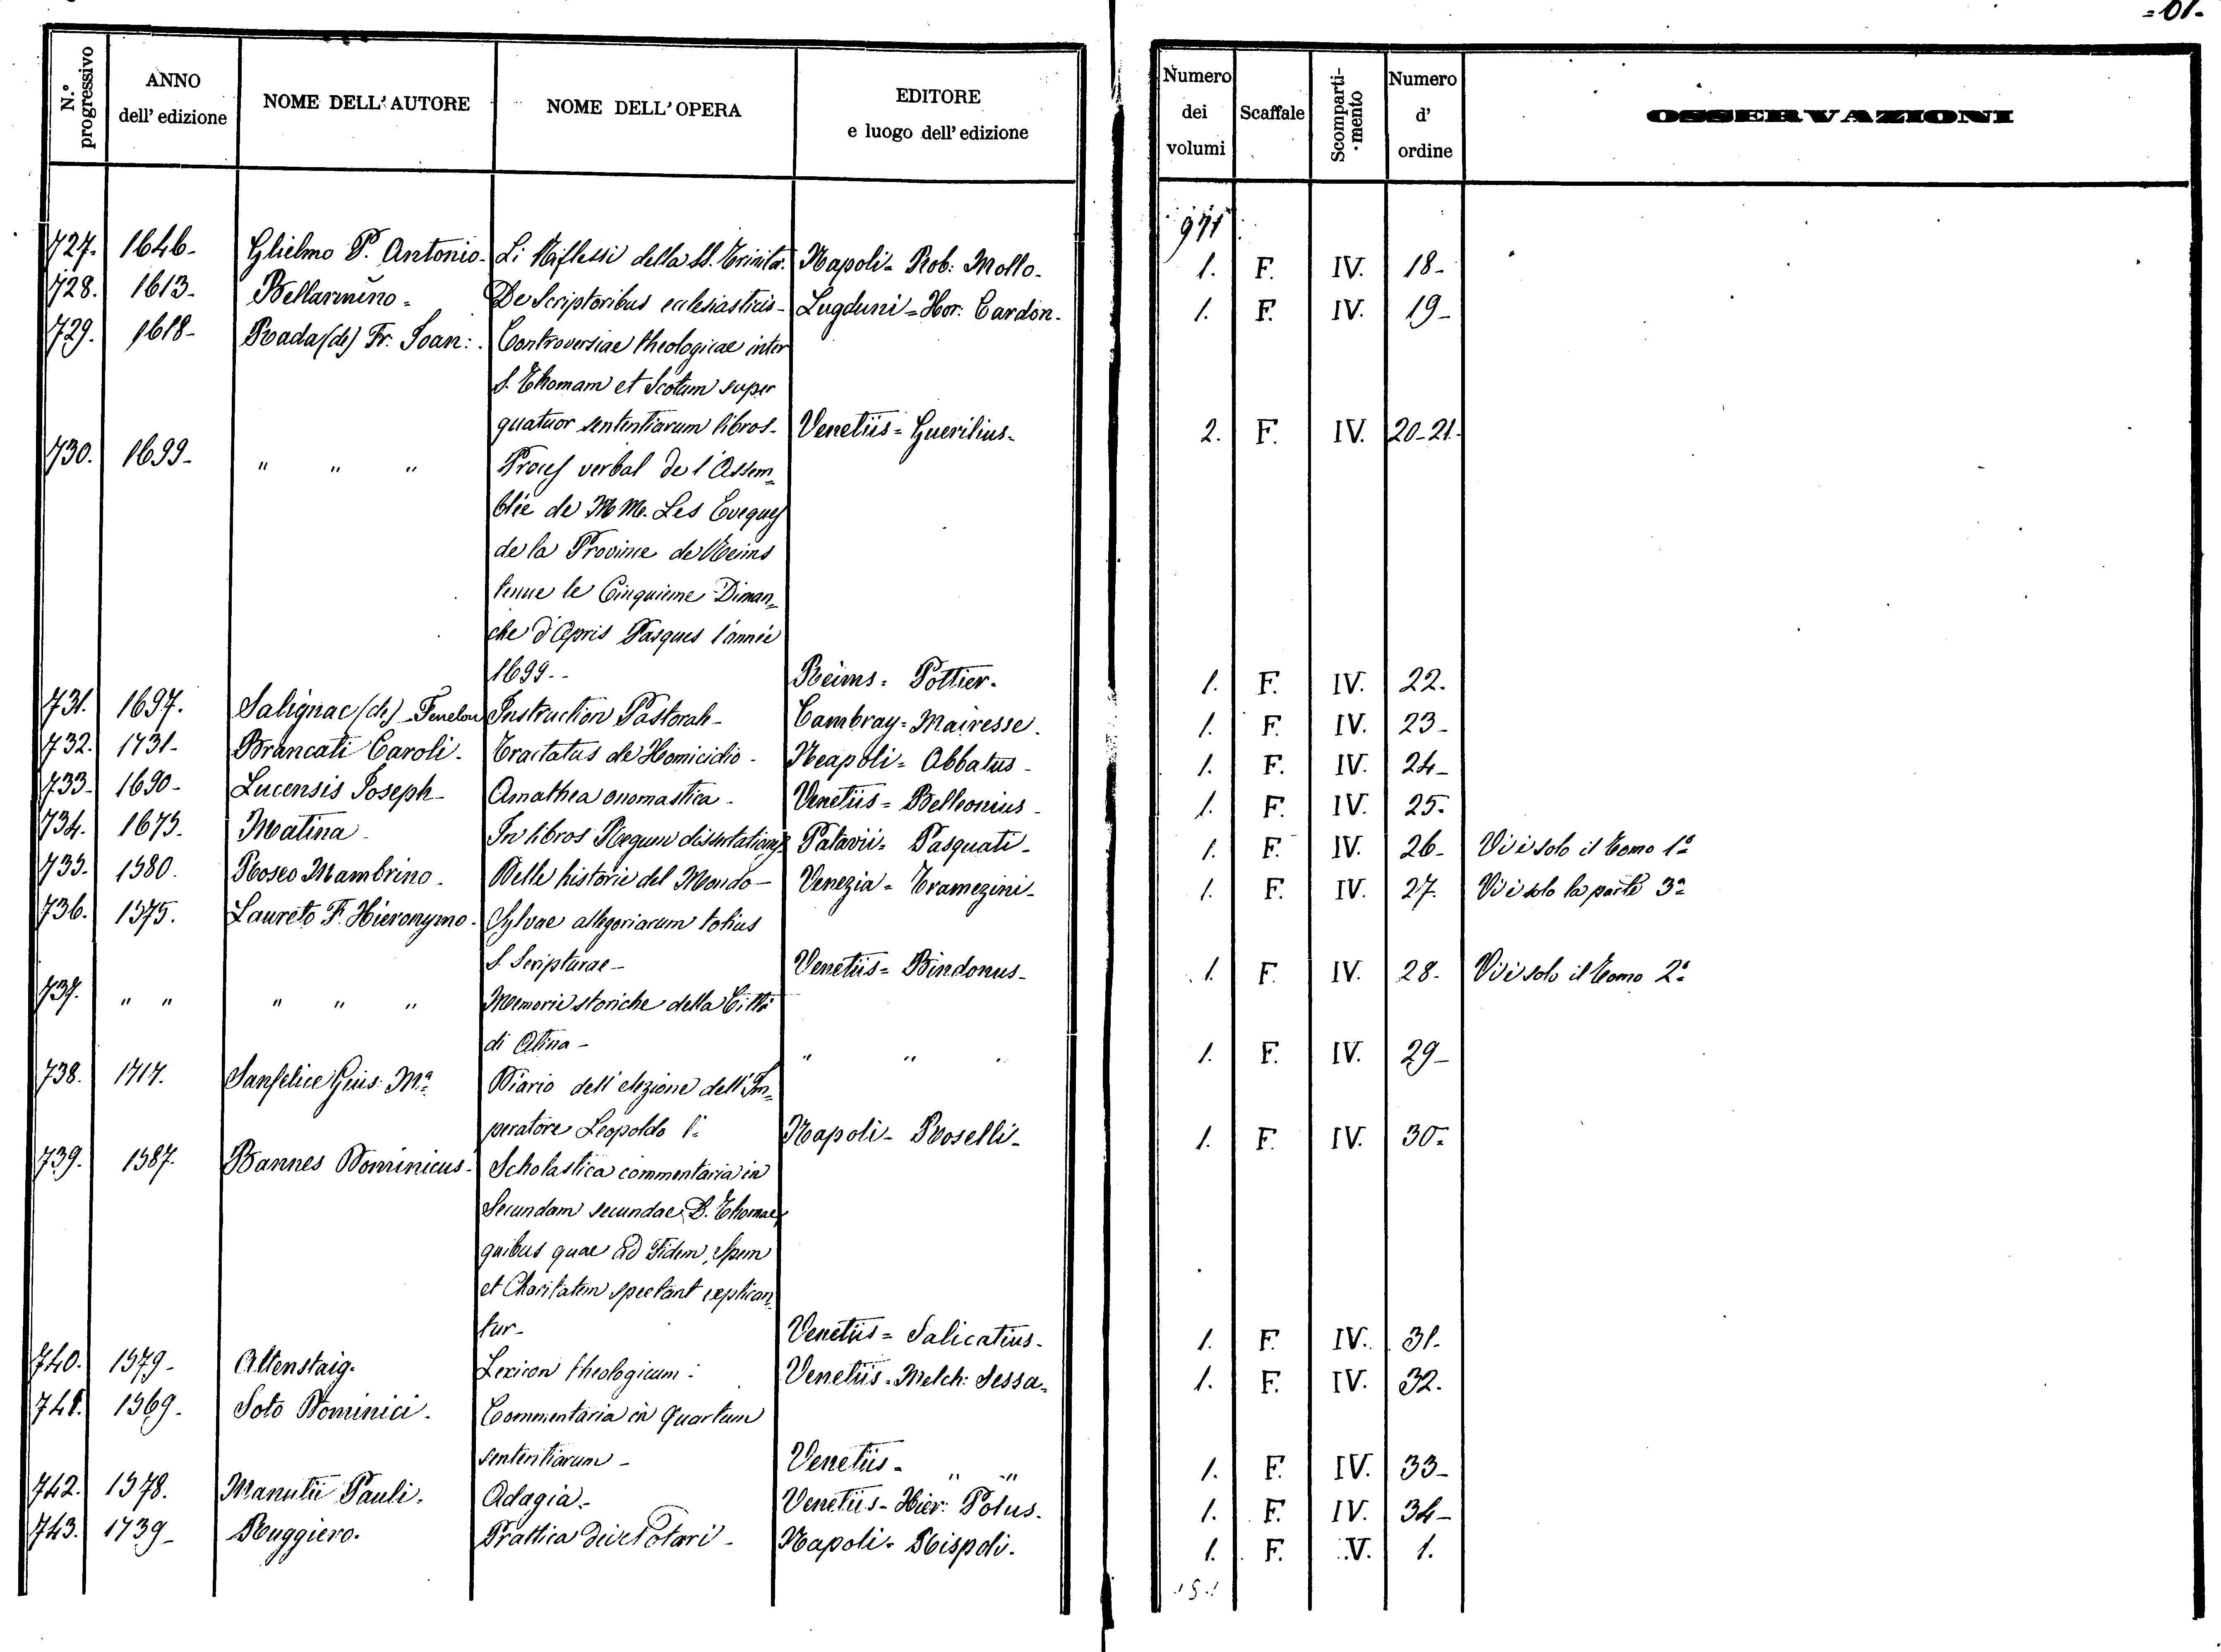 =61-
N.° progressivo
ANNO dell' edizione
NOME DELL' AUTORE
NOME DELL' OPERA
EDITORE e luogo dell' edizione
Numero dei volumi
Scaffale
Scomparti-mento
Numero d' ordine
OSSERVAZIONI
971
727. 1646- Glielmo P. Antonio- Li Riflessi della SS. Trinità. Napoli= Rob: Mollo- 1. F. IV. 18-
728. 1613- Bellarmino- De Scriptoribus ecclesiasticis- Lugduni= Hor: Cardon- 1. F. IV. 19-
729. 1618- Rada (de) Fr. Joan: Controversiae theologicae inter
S. Thomam et Scotum super
quatuor sententiarum libros- Venetiis= Guerilius- 2. F. IV. 20-21-
730. 1699- " " " Proces verbal de l'Assem=
blée de MM. Les Eveques
de la Province de Reims
tenue le Cinquieme Diman=
che d'Apris Pasques l'année
1699-- Reims= Pottier- 1. F. IV. 22.
731. 1697. Salignac (de) -Fenelon Instruction Pastorale- Cambray= Mairesse. 1. F. IV. 23-
732. 1731- Brancati Caroli. Tractatus de Homicidio- Neapoli= Abbatus- 1. F. IV. 24-
733- 1690- Lucensis Joseph- Amathea onomastica- Venetiis= Belleonius- 1. F. IV. 25-
734. 1675. Matina- In libros Regum dissertationes Patavii= Pasquati- 1. F. IV. 26- Vi è solo il Tomo 1°
735- 1580. Roseo Mambrino- Delle historie del Mondo- Venezia= Tramezini- 1. F. IV. 27. Vi è solo la parte 3ª
736. 1575. Laureto F. Hieronymo- Sylvae allegoriarum totius
S. Scripturae- Venetiis= Bindonus- 1. F. IV. 28- Vi è solo il Tomo 2°
737. " " " " " Memorie storiche della Città
di Atina- " " " 1. F. IV. 29-
738. 1717. Sanfelice Gius: Mª Diario dell'elezione dell'Im=
peratore Leopoldo 1° Napoli- Roselli- 1. F. IV. 30-
739. 1587. Bannes Dominicus- Scholastica commentaria in
Secundam secundae D. Thomae,
quibus quae ad Fidem, Spem
et Charitatem spectant explican=
tur- Venetiis= Salicatius- 1. F. IV. 31-
740. 1579- Altenstaig. Lexicon theologicum: Venetiis= Melch: Sessa- 1. F. IV. 32.
741. 1569- Soto Dominici. Commentaria in quartum
sententiarum- Venetiis- " " 1. F. IV. 33-
742. 1578. Manutii Pauli. Adagia- Venetiis- Hier: Polus. 1. F. IV. 34-
743. 1739- Ruggiero. Prattica dei Notari- Napoli- Rispoli- 1. F. V. 1.